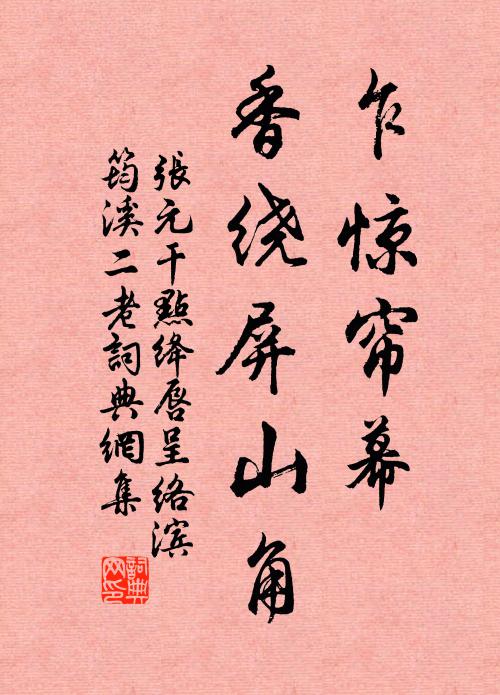 乍惊帘幕
香绕屏山角
張元干點绛唇呈络滨
筠溪二老詞典網集
詞典网印